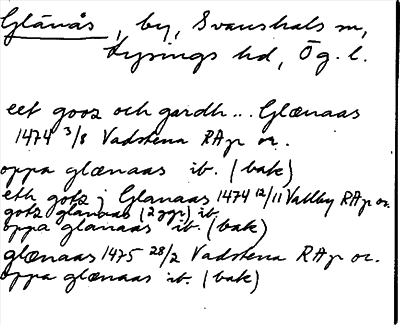 Glänås, by, Svanshals sn,
Lysings hd, Ög. l.
eet gooz och gardh .. Glænaas
1474 3/8 Vadstena RAp or.
oppa glænaas ib. (bak)
eth gotz j Glanaas 1474 12/11 Vallby RAp or.
gotz glanaas (2 ggr) ib.
oppa glanaas ib. (bak)
glænaas 1475 28/2 Vadstena RAp or.
oppa glænaas ib. (bak)